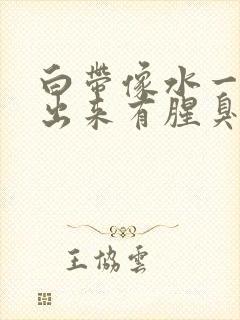 白帶像水一
出来有腥臭
王協雲